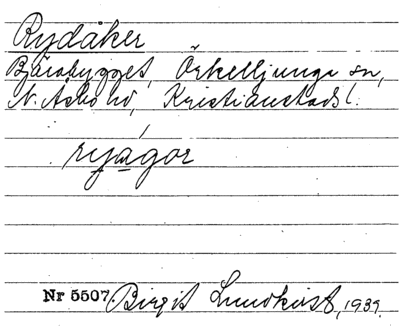 Rydåker
Bjärabygget, Örkelljunga sn,
N. Åsbo hd, Kristianstads l.
ryágor
Nr 5507. Birgit Lundkvist, 1939.